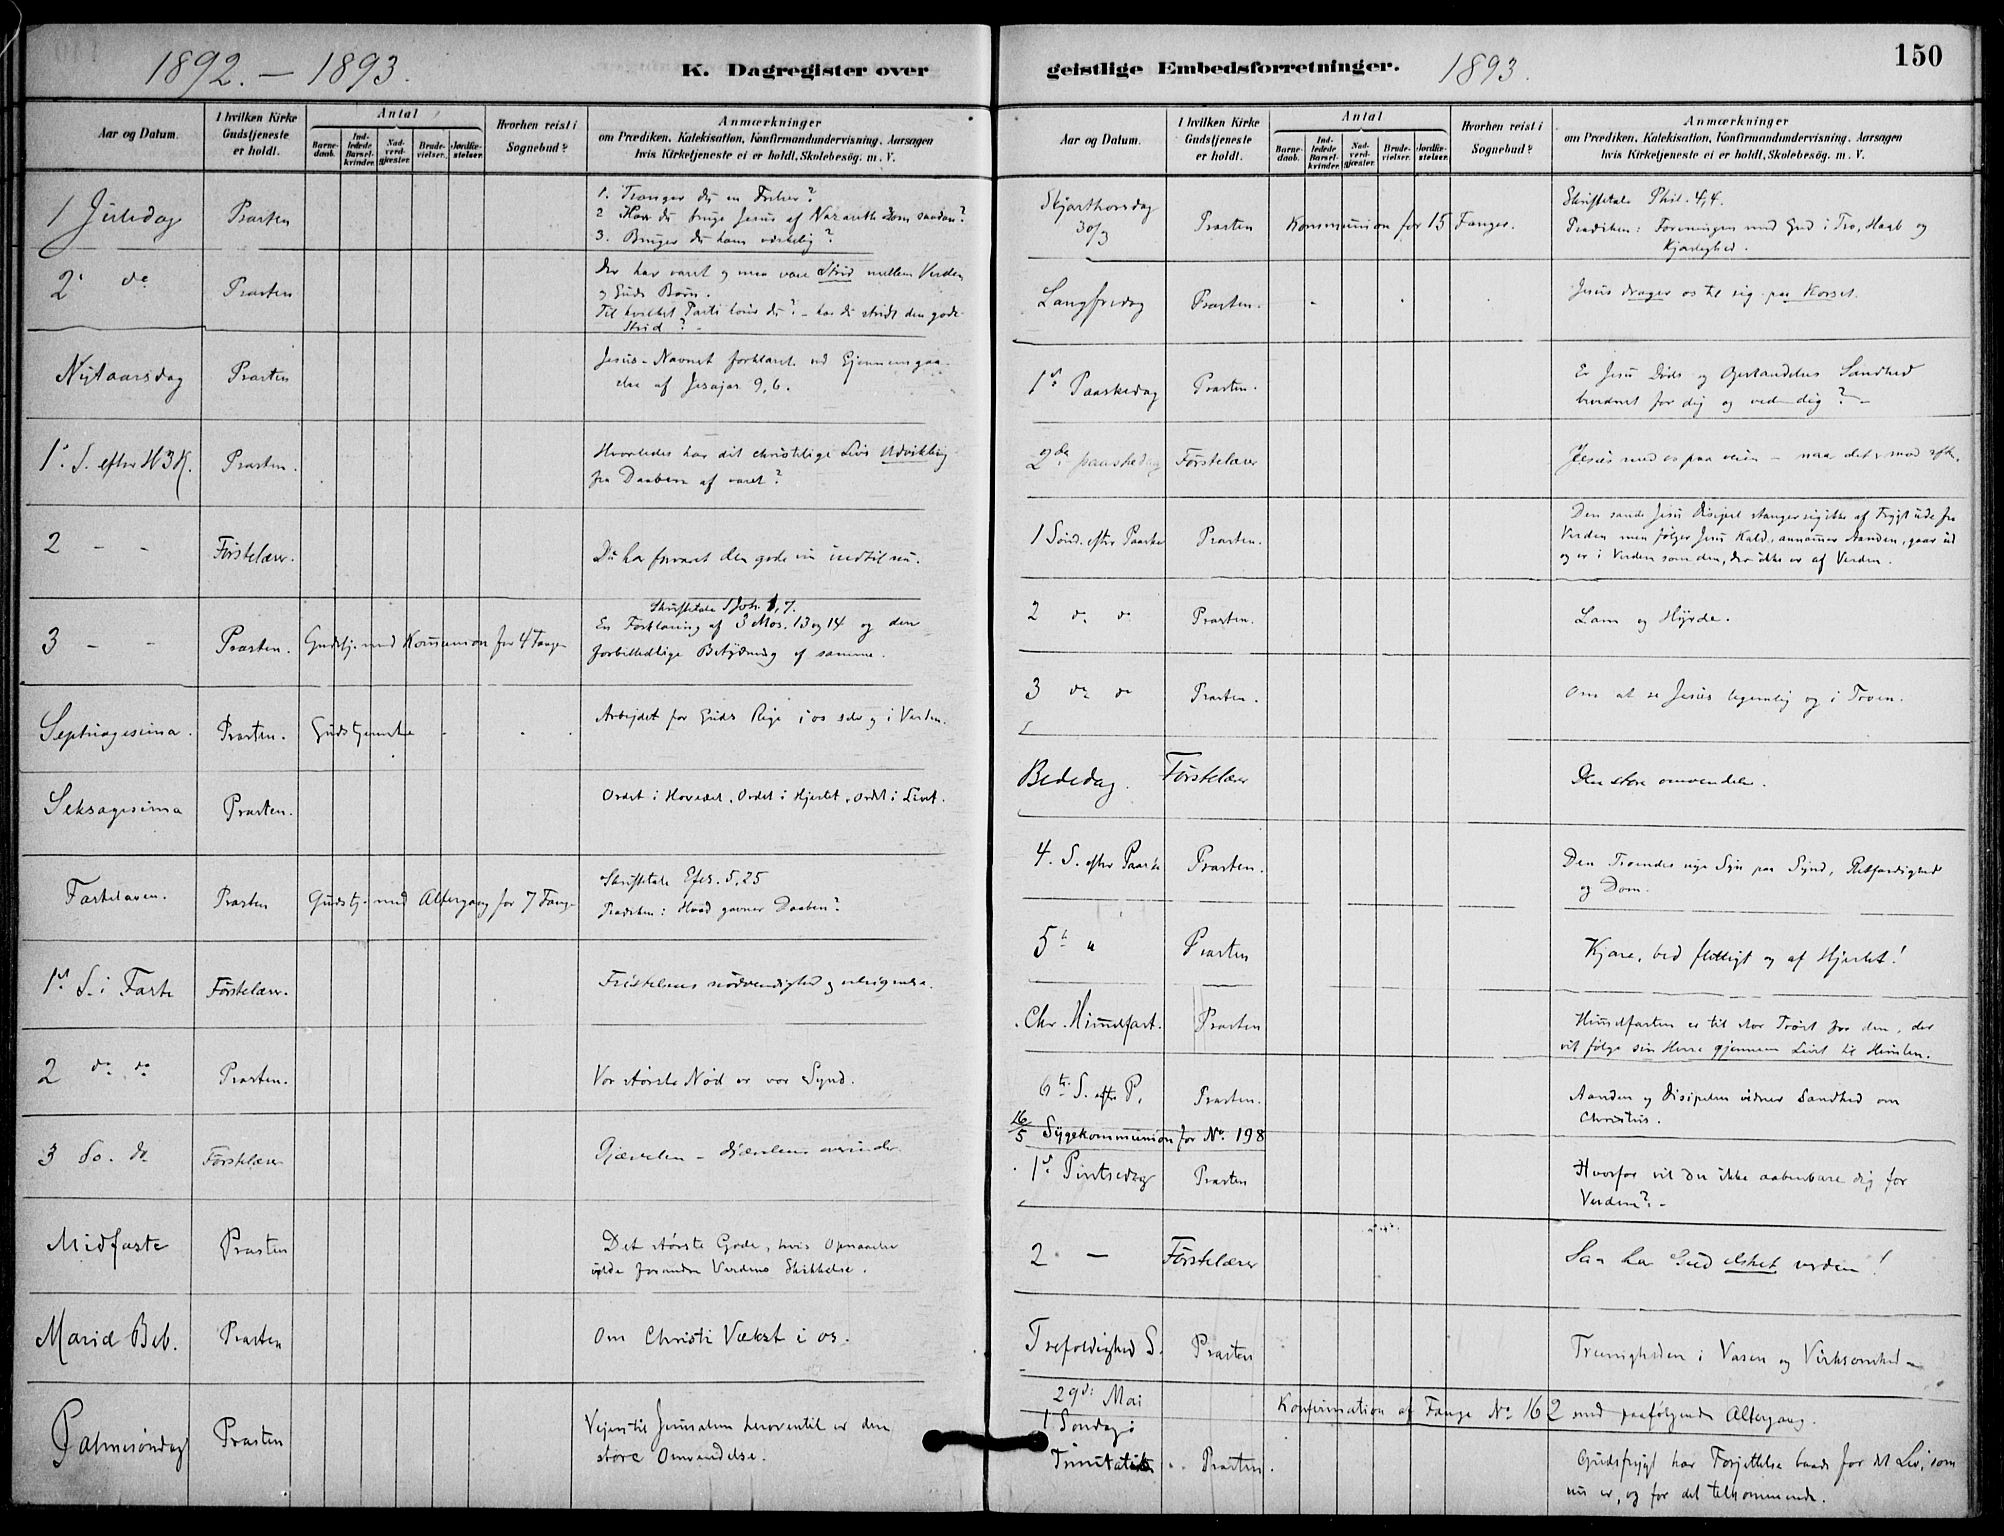 1892. – 1893.
K. Dagregister over
Aar og Datum.
I hvilken Kirke Gudstjeneste er holdt.
Antal
Barnedaab.
Indledede Barselkvinder.
Nadverdgjester.
Brudevielser.
Jordfæstelser.
Hvorhen reist i Sognebud?
Anmærkninger
om Prædiken, Katekisation, Konfirmandundervisning, Aarsagen
hvis Kirketjeneste ei er holdt, Skolebesøg. m. V.
1 Juledag Præsten
1. Trænger du en Frelser?
2 Har du brug Jesus af Nazareth som saadan?
3. Bruger du ham virkelig?
2. do Præsten
Der har været og maa være Strid mellem Verden
og Guds Børn.
Til hvilket Parti hører du? – har du stridt den gode
Strid? –
Nytaarsdag Præsten
Jesus-Navnet forklaret ved Gjennemgaa-
else af Jesajas 9,6.
1. S. efter H3K. Præsten.
Hvorledes har dit christelige Livs Udvikling
fra Daaben af været?
2 – – Førstelærer.
Du har forvaret den gode vin indtil nu.
3 – – Præsten. Gudstj. med Kommunion for 4 Fanger
Skriftetale 1 Joh. 1,7.
En Forklaring af 3 Mos. 13 og 14 og den
forbilledlige Betydning af samme.
Septuagesima. Præsten. Gudstjeneste
Arbejdet for Guds Rige i os selv og i Verden.
Seksagesima Præsten.
Ordet i Hovedet, Ordet i Hjertet, Ordet i Livet.
Fastelaven. Præsten Gudstj. med Altergang for 7 Fange
Skriftetale Efes. 5,25
Prædiken: Hvad gavner Daaben?
1ste S. i Faste Førstelærer.
Fristelsens nødvendighed og
2 do do Præsten.
Vor største Nød er vor Synd.
3 do. do Førstelærer
Djævelen – djævelens overvinder.
Midfaste Præsten
Det største Gode, hvis Opnaaelse
vilde forandre Verdens Skikkelse.
Mariæ Beb. Præsten
Om Christi Vækst i os.
Palmesøndag Præsten
Vejen til Jerusalem heroventil er den
store Omvendelse.
geistlige Embedsforretninger.
1893.
150
Aar og Datum.
I hvilken Kirke Gudstjeneste er holdt.
Antal
Barnedaab.
Indledede Barselkvinder.
Nadverdgjester.
Brudevielser.
Jordfæstelser.
Hvorhen reist i Sognebud?
Anmærkninger
om Prædiken, Katekisation, Konfirmandundervisning, Aarsagen
hvis Kirketjeneste ei er holdt, Skolebesøg. m. V.
Skjærthorsdag 30/3 Præsten Kommunion for 15 Fanger.
Skriftetale Phil. 4,4.
Prædiken: Foreningen med Gud i Tro, Haab og
Kjærlighed.
Langfredag Præsten.
Jesus drager os til sig paa Korset.
1ste Paaskedag Præsten.
Er Jesu Døds og Opstandelses Sandhed
for dig og ved dig? –
2den paaskedag Førstelærer
Jesus med os paa veien – naar det er mod aften.
1 Sønd. efter Paaske Præsten.
Den sande Jesu Discipel stænger sig ikke af Frygt ude fra
Verden men følger Jesu Kald, annammer Aanden, gaar ud
og er i Verden som den, der ikke er af Verden.
2 do do Præsten.
Lam og Hyrde.
3 do do Præsten.
Om at se Jesus legemlig og i Troen.
Bededag. Førstelærer
Den store omvendelse!
4. S. efter Paaske Præsten.
Den Troendes nye Syn paa Synd, Retfærdighed
og Dom.
5te " Præsten
Kjære, bed flittigt og af Hjertet!
Chr. Himmelfart. Præsten
Himmelfarten er til stor Trøst for den, der
vil følge sin Herre gjennem Livet til Himlen.
6te S. efter P. Præsten.
Aanden og Disiplene vidner Sandhed om
Christus.
16/5 Sygekommunion for No. 198
1ste Pintsedag Præsten
Hvorfor vil du ikke aabenbare dig for
Verden? –
2 – Førstelærer
Saa har Gud elsket verden!
Trefoldighed S. Præsten
Treenigheden i Væsen og Virksomhed –
29de Mai Konfirmation af Fange No 162 med paafølgende Altergang.
1 Søndag i
Trinitatis Præsten.
Gudsfrygt har Forjættelse baade for det Liv, som
nu er, og for det tilkommende.